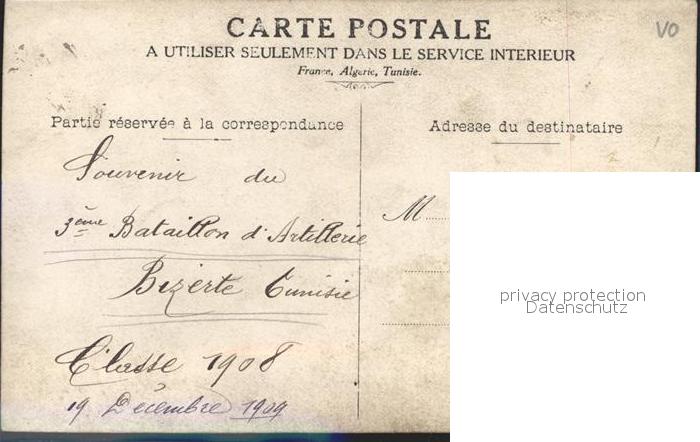 CARTE POSTALE
A UTILISER SEULEMENT DANS LE SERVICE INTERIEUR
France, Algerie, Tunisie.
VO
Partie réservée à la correspondance
Adresse du destinataire
Souvenir du
3ème Bataillon d'Artillerie
M
Bizerte Tunisie
privacy protection
Datenschutz
Classe 1908
19 Décembre 1909